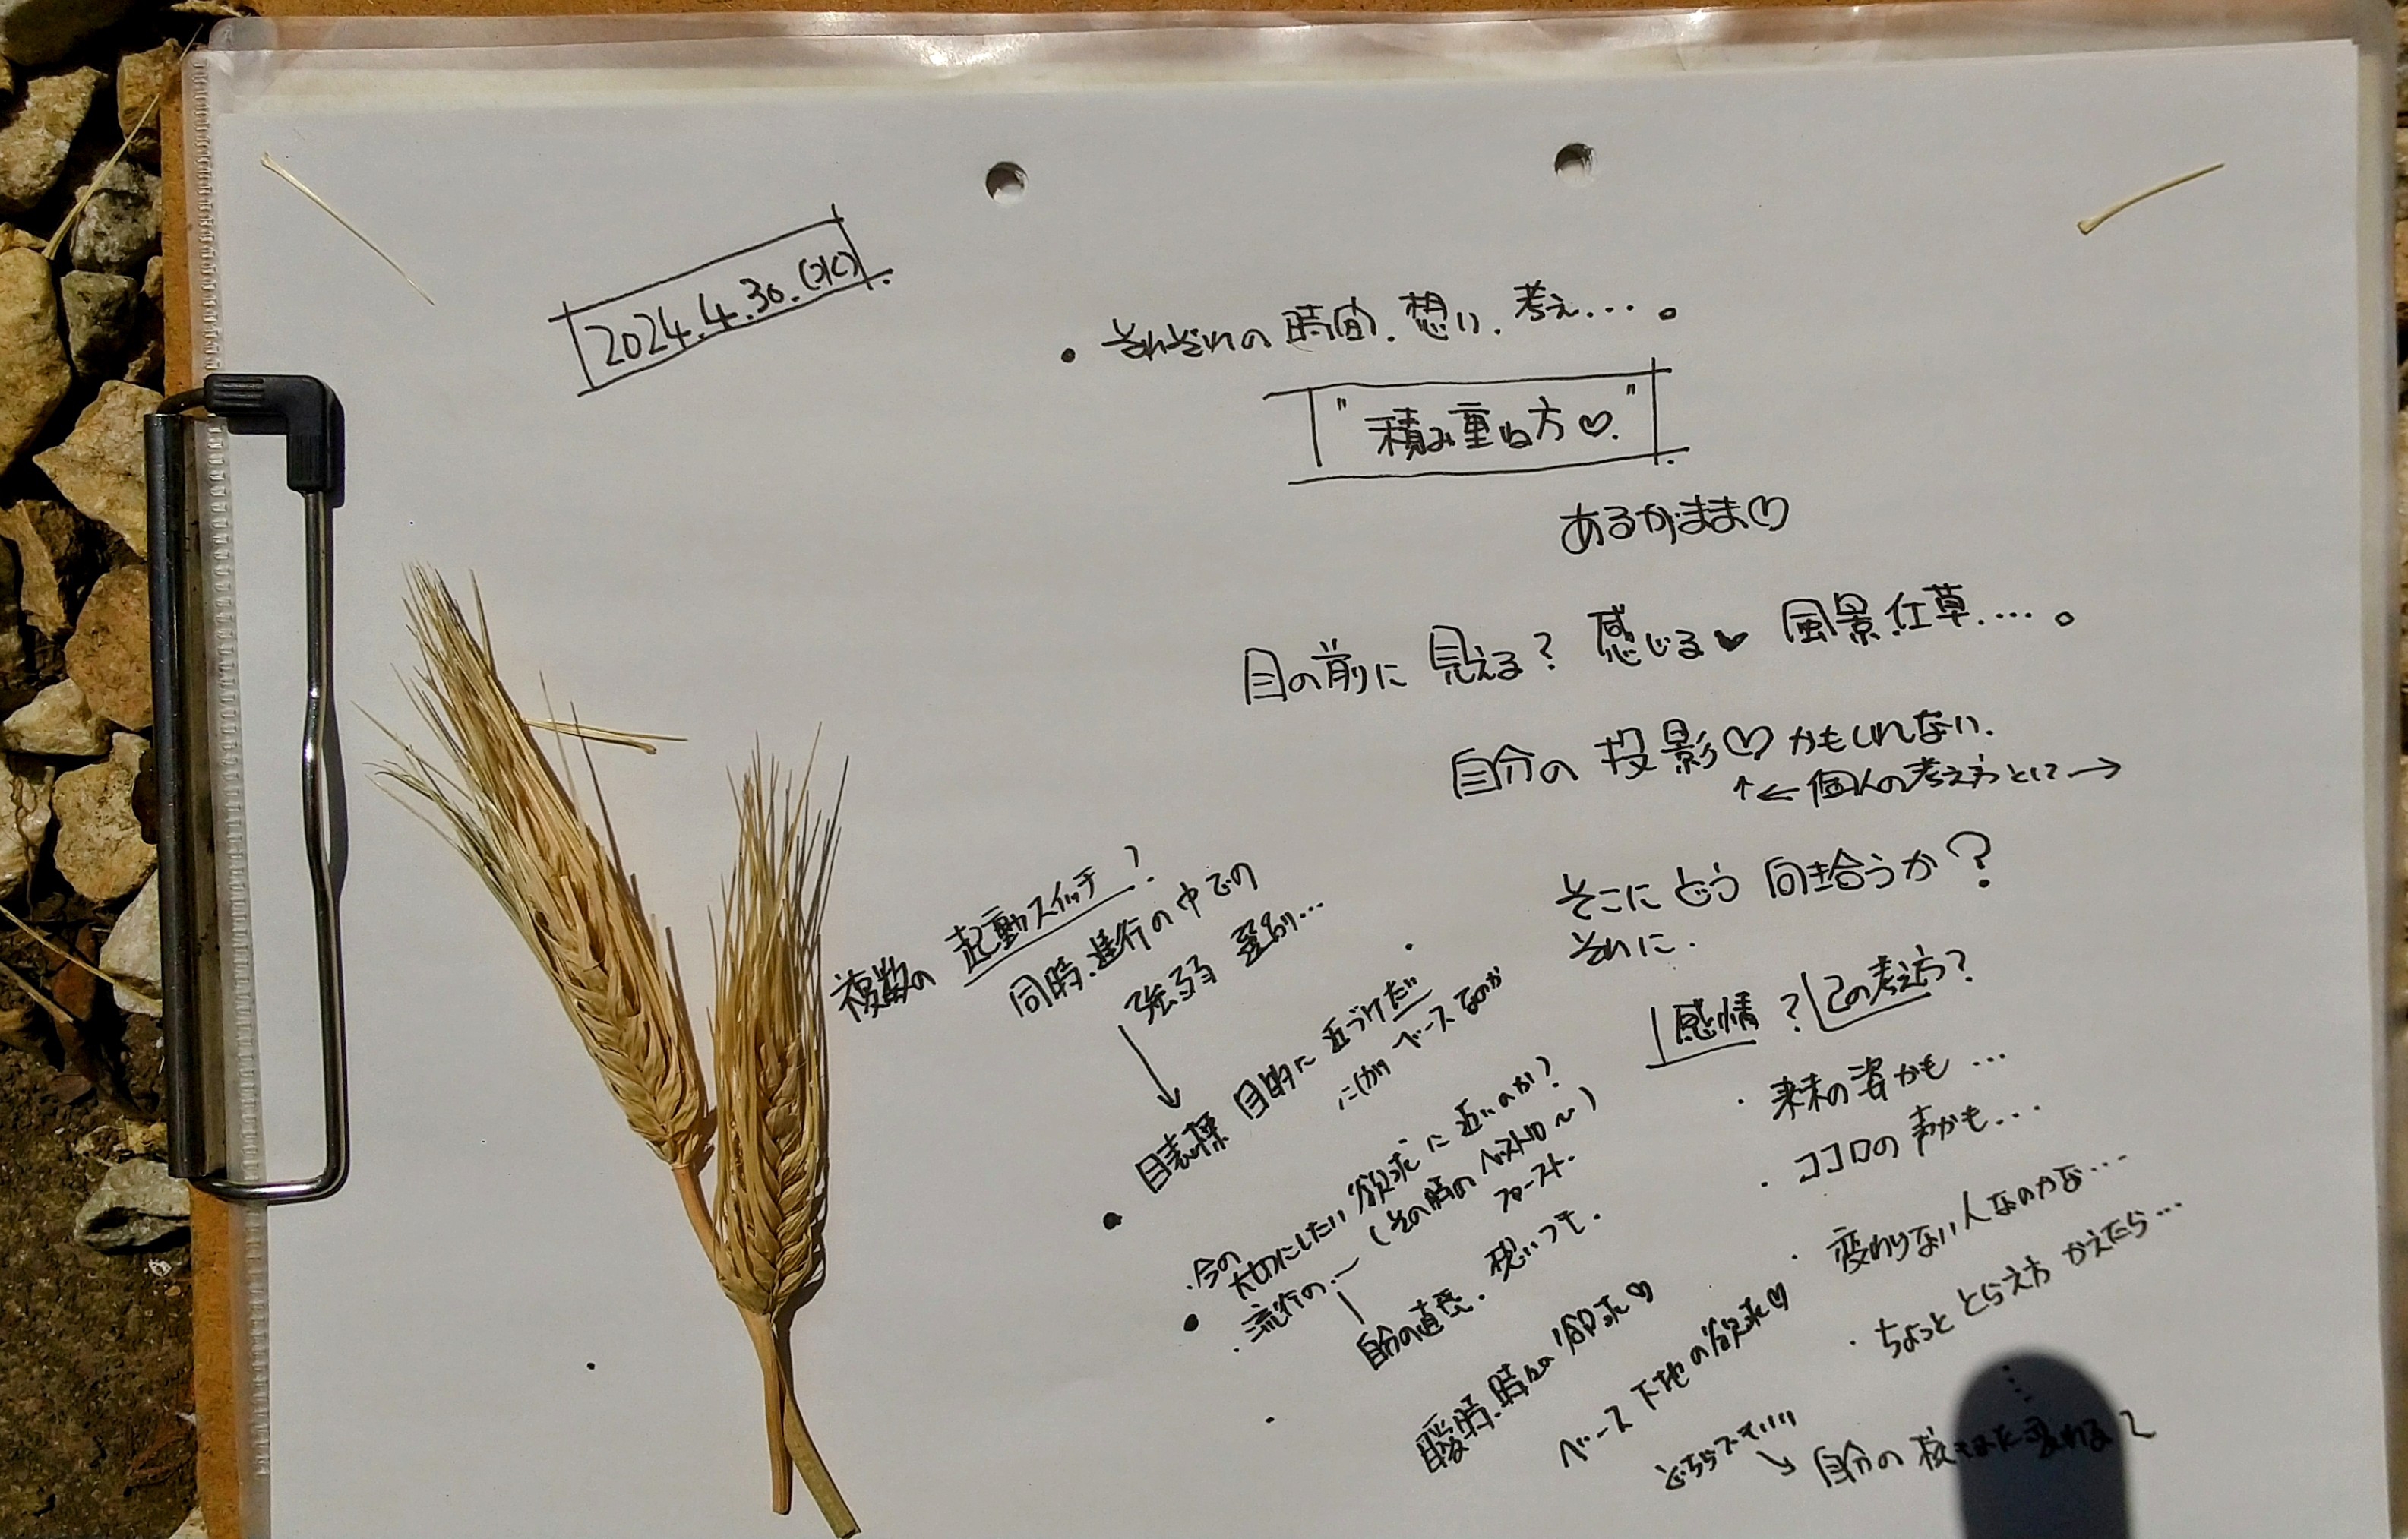 2024.4.30.(水)
・それぞれの時間.想い.考え....。
"積み重ね方♡."
あるがまま♡
目の前に見える?感じる♥風景.仕草....。
自分の投影♡かもしれない.
↑←個人の考え方として→
そこにどう向き合うか?
それに.
感情?この考え方?
・未来の姿かも...
・ココロの声かも...
・変わりない人なのかな...
・ちょっととらえ方かえたら...
複数の起動スイッチ?
同時.進行の中での
強弱
↓
目標 目的に近づけだ
ベースなのか
・今の
大切にしたい欲求に近いのか?
・流行の.ー(その時のベストロ〜)
自分の直感.想いつき.
時々の欲求♡
ベース下地の欲求♡
どちらでもいい
↘自分の